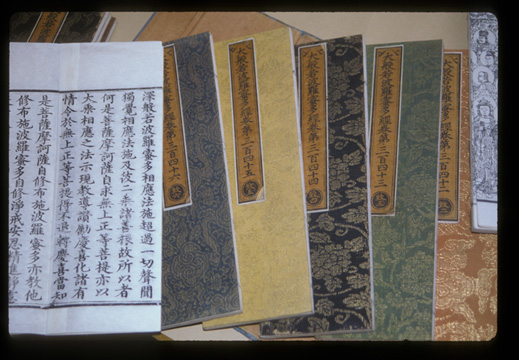 大般若波羅蜜多經卷第三百四十二
大般若波羅蜜多經卷第三百四十三
大般若波羅蜜多經卷第三百四十四
大般若波羅蜜多經卷第三百四十五
大般若波羅蜜多經卷第三百四十六
深般若波羅蜜多相應法施超過一切聲聞
獨覺相應法施及彼二乘諸善根故所以者
何是菩薩摩訶薩自求無上正等菩提亦以
大乘相應之法示現教導讚勵慶喜化諸有
情令於無上正等菩提得不退轉慶喜當知
是菩薩摩訶薩自修布施波羅蜜多亦教他
修布施波羅蜜多自修淨戒安忍精進靜慮